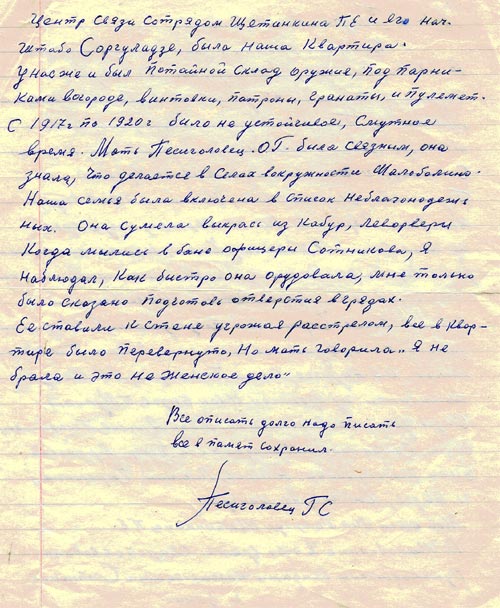 Центр связи сотрядом Щетинкина ПЕ и его нач-
штабо Соргуладзе, была наша квартира.
У нас же и был потайной склад оружие, под парни-
ками вогороде, винтовки, патроны, гранаты, и пулемет.
С 1917г по 1920г было не устойчивое, смутное
время. Мать Песиголовец. О.Г. была связным, она
знала, что делается в селах вокружности Шалоболино.
Наша семья была включена в список неблагонодежь
ных. Она сумела выкрась из кабур, леворвери
когда мылись в бане офицеры Сотникова, я
наблюдал, как быстро она орудовала, мне только
было сказано подготовь отверстия вгрядах.
Ее ставили к стене угрожая расстрелом, все в квар-
тире было перевернуто, но мать говорила „я не
брала и это не женское дело"
Все описать долго надо писать
все в памят сохранил.
Песиголовец ГС